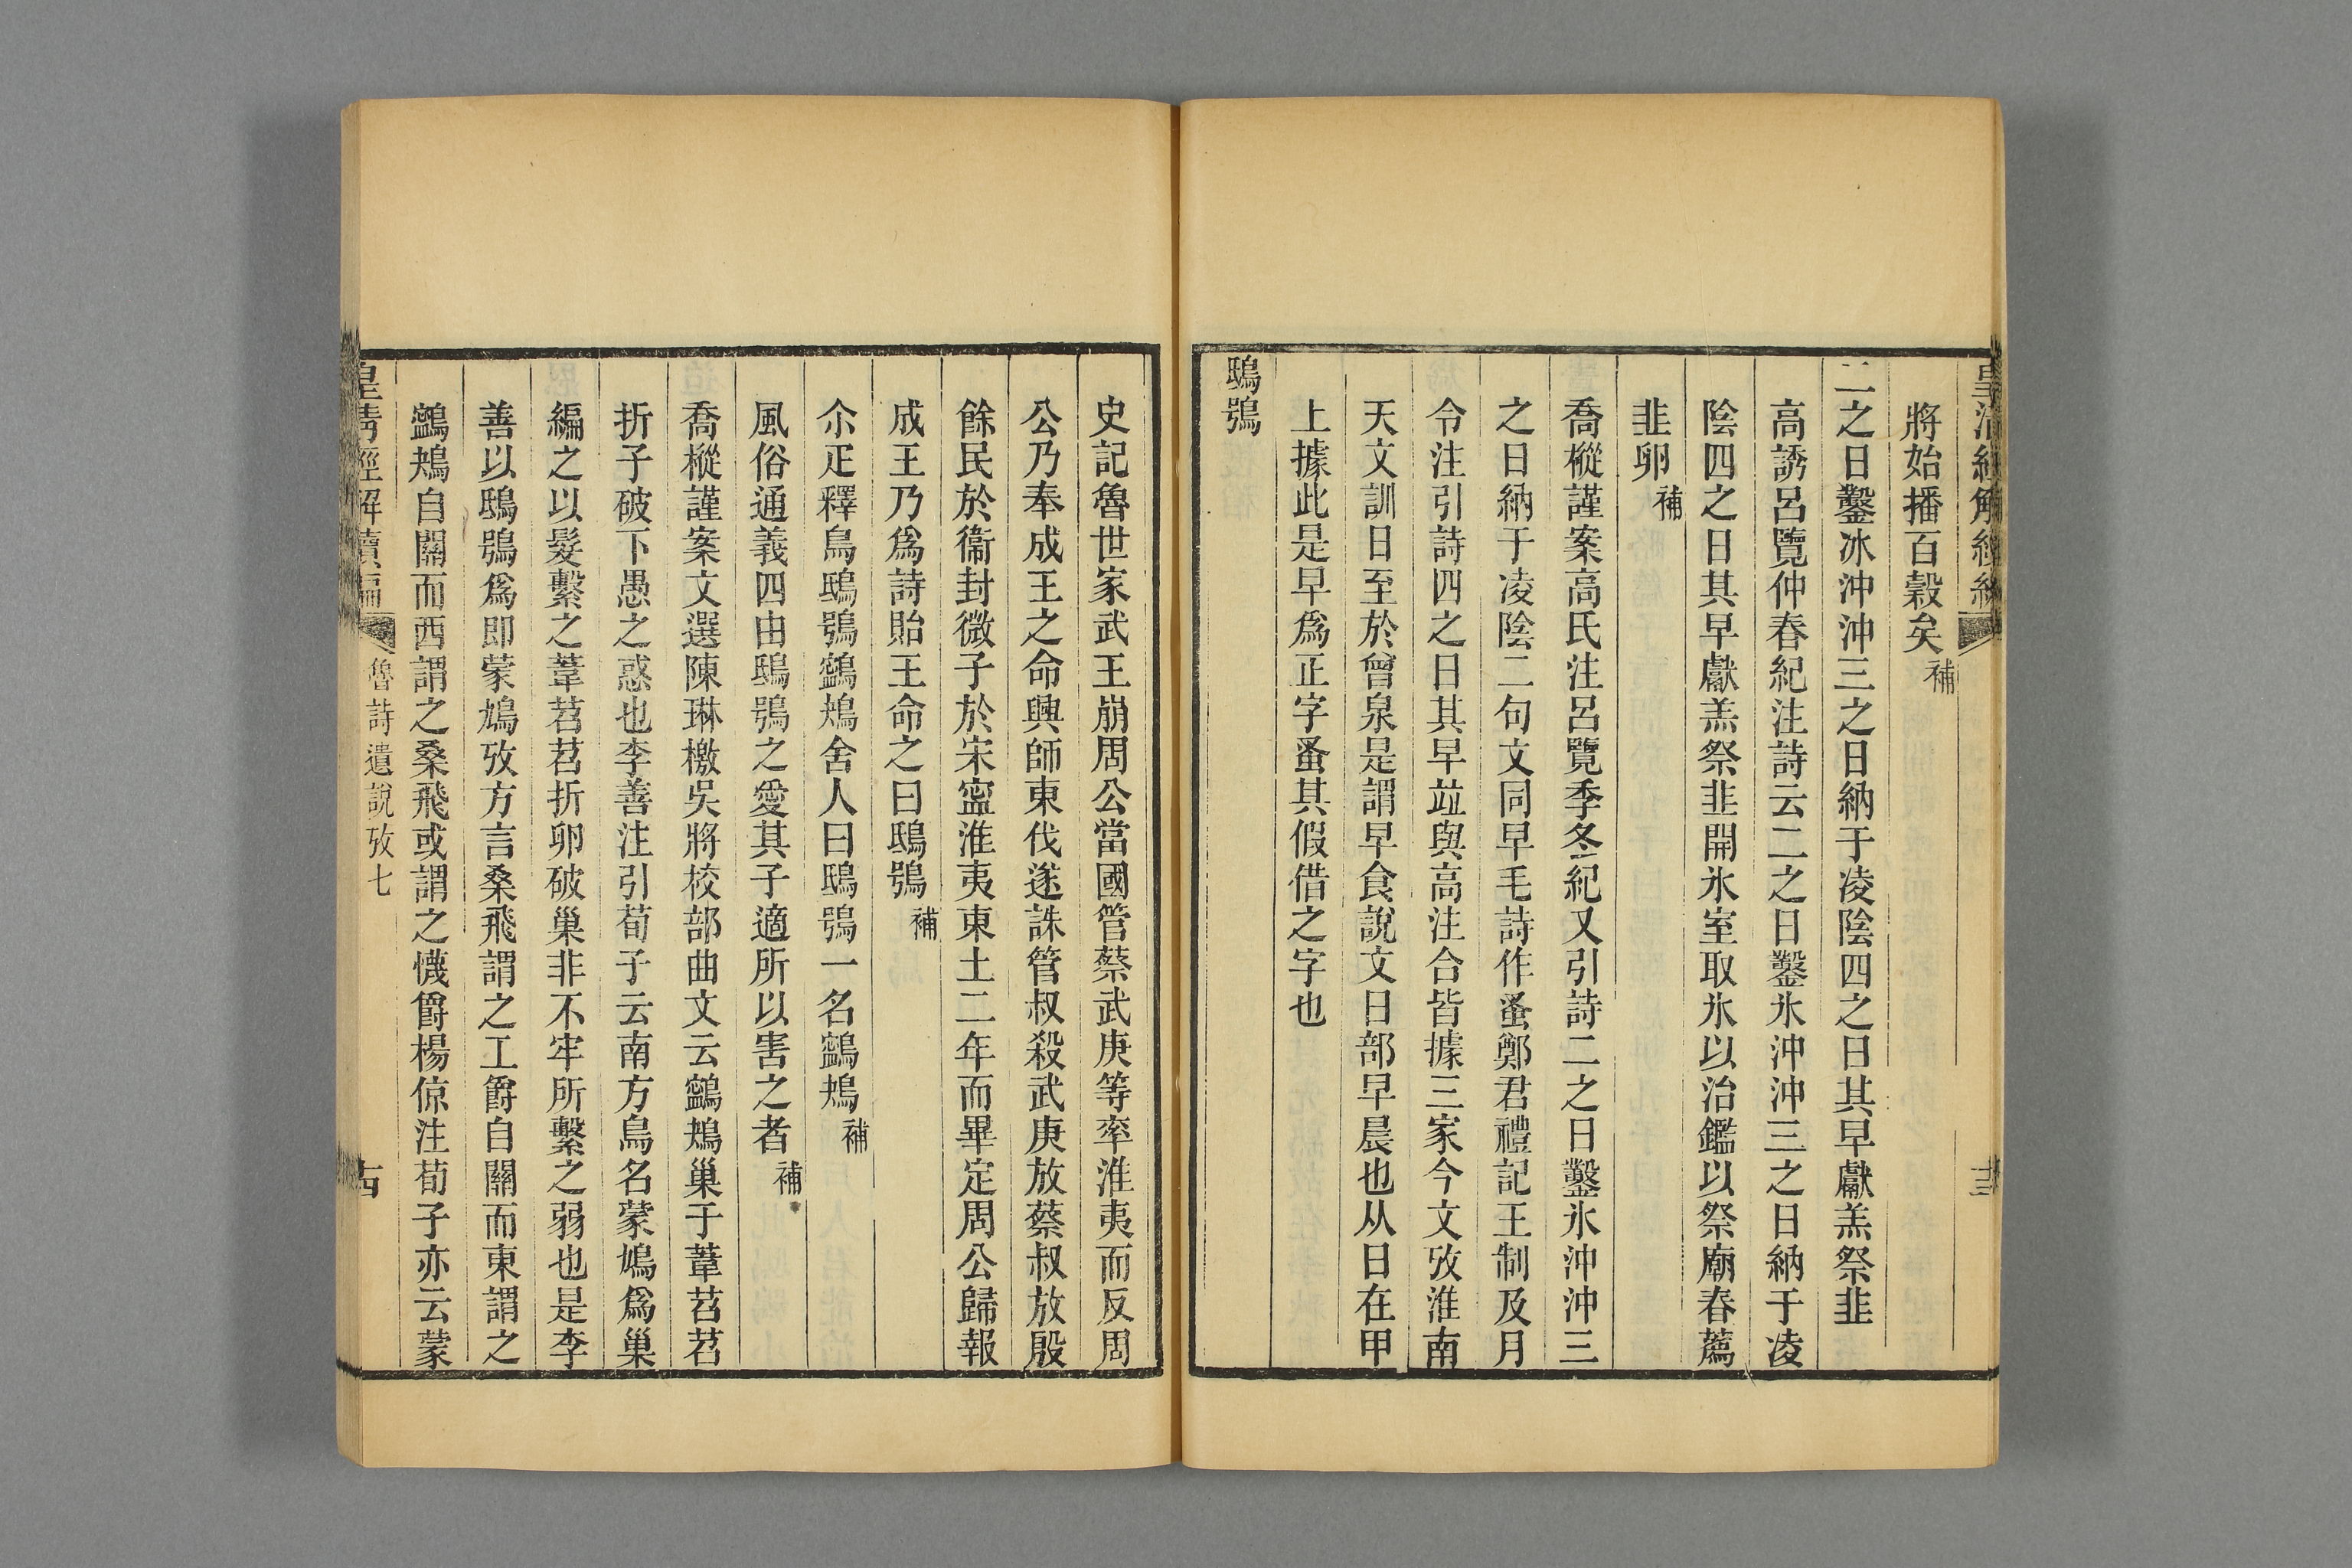 將始播百穀矣補
二之日鑿冰沖沖三之日納于凌陰四之日其早獻羔祭韭
高誘呂覽仲春紀注詩云二之日鑿氷沖沖三之日納于凌
陰四之日其早獻羔祭韭開氷室取氷以治鑑以祭廟春薦
韭卵補
喬樅謹案高氏注呂覽季冬紀又引詩二之日鑿氷沖沖三
之日納于凌陰二句文同早毛詩作蚤鄭君禮記王制及月
令注引詩四之日其早竝與高注合皆據三家今文攷淮南
天文訓日至於曾泉是謂早食說文日部早晨也从日在甲
上據此是早爲正字蚤其假借之字也
鴟鴞
史記魯世家武王崩周公當國管蔡武庚等率淮夷而反周
公乃奉成王之命興師東伐遂誅管叔殺武庚放蔡叔放殷
餘民於衞封微子於宋寍淮夷東土二年而畢定周公歸報
成王乃爲詩貽王命之曰鴟鴞補
尒疋釋鳥鴟鴞鸋鴂舍人曰鴟鴞一名鸋鴂補
風俗通義四由鴟鴞之愛其子適所以害之者補
喬樅謹案文選陳琳檄吳將校部曲文云鸋鴂巢于葦苕苕
折子破下愚之惑也李善注引荀子云南方鳥名蒙鳩爲巢
編之以髮繫之葦苕苕折卵破巢非不牢所繫之弱也是李
善以鴟鴞爲即蒙鳩攷方言桑飛謂之工爵自關而東謂之
鸋鴂自關而西謂之桑飛或謂之懱爵楊倞注荀子亦云蒙
皇清經解續編 魯詩遺說攷七 十四